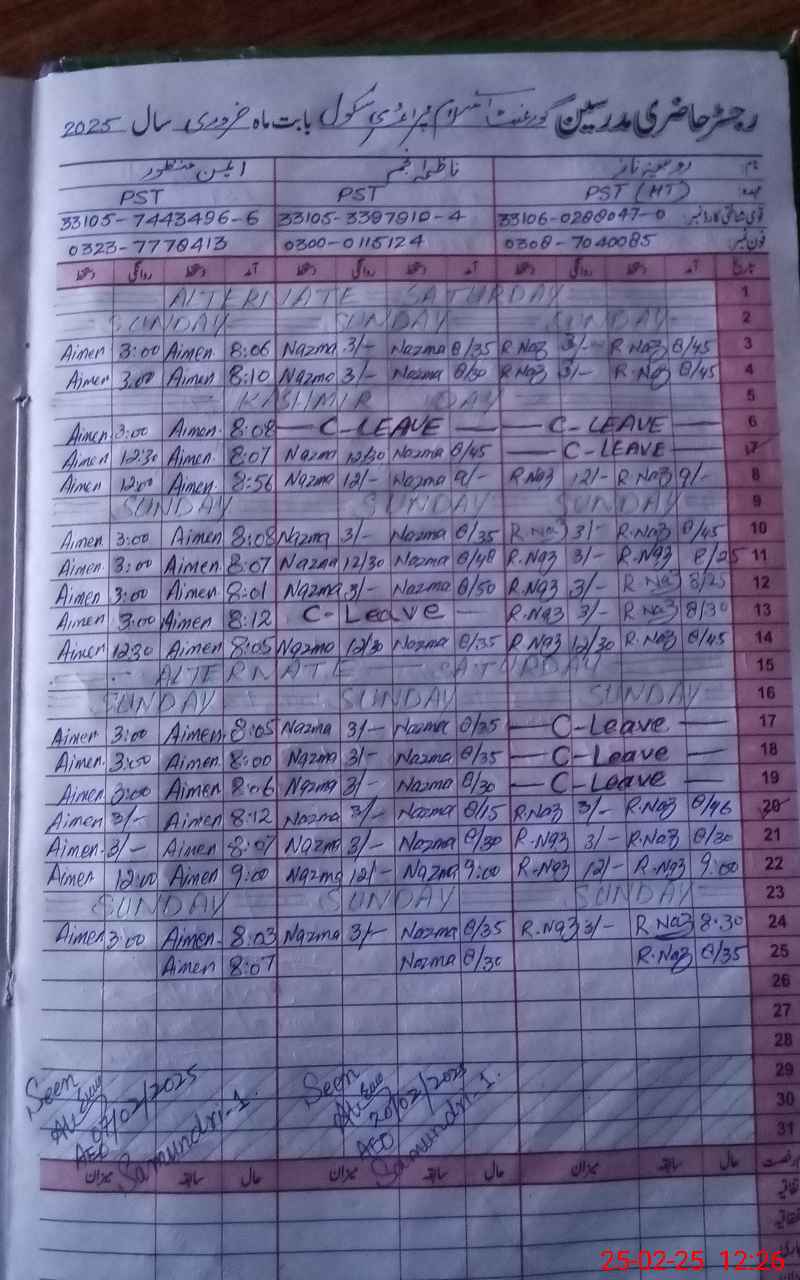 رجسٹر حاضری مدرسین گورنمنٹ اسلام پرائمری سکول بابت ماہ فروری سال 2025
ایمن منظور ناظمہ انجم روبینہ ناز نام
PST PST PST (HT) عہدہ
33105-7443496-6 33105-3397910-4 33106-0288047-0 قومی شناختی کارڈ نمبر
0323-7778413 0300-0115124 0308-7040085 فون نمبر
دستخط روانگی دستخط آمد دستخط روانگی دستخط آمد دستخط روانگی دستخط آمد تاریخ
ALTERNATE SATURDAY 1
SUNDAY SUNDAY SUNDAY 2
Aimen 3:00 Aimen 8:06 Nazma 3/- Nazma 8/35 R.Naz 3/- R.Naz 8/45 3
Aimen 3:00 Aimen 8:10 Nazma 3/- Nazma 8/30 R.Naz 3/- R.Naz 8/45 4
KASHMIR DAY 5
Aimen 3:00 Aimen 8:08 — C-LEAVE — — C-LEAVE — 6
Aimen 12:30 Aimen 8:07 Nazma 12/30 Nazma 8/45 — C-LEAVE — 7
Aimen 12:00 Aimen 8:56 Nazma 12/- Nazma 9/- R.Naz 12/- R.Naz 9/- 8
SUNDAY SUNDAY SUNDAY 9
Aimen 3:00 Aimen 8:08 Nazma 3/- Nazma 8/35 R.Naz 3/- R.Naz 8/45 10
Aimen 3:00 Aimen 8:07 Nazma 12/30 Nazma 8/40 R.Naz 3/- R.Naz 8/25 11
Aimen 3:00 Aimen 8:01 Nazma 3/- Nazma 8/50 R.Naz 3/- R.Naz 8/25 12
Aimen 3:00 Aimen 8:12 C-Leave — R.Naz 3/- R.Naz 8/30 13
Aimen 12:30 Aimen 8:05 Nazma 12/30 Nazma 8/35 R.Naz 12/30 R.Naz 8/45 14
ALTERNATE SATURDAY 15
SUNDAY SUNDAY SUNDAY 16
Aimen 3:00 Aimen 8:05 Nazma 3/- Nazma 8/35 — C-Leave — 17
Aimen 3:00 Aimen 8:00 Nazma 3/- Nazma 8/35 — C-Leave — 18
Aimen 3:00 Aimen 8:06 Nazma 3/- Nazma 8/30 — C-Leave — 19
Aimen 3/- Aimen 8:12 Nazma 3/- Nazma 8/15 R.Naz 3/- R.Naz 8/46 20
Aimen 3/- Aimen 8:07 Nazma 3/- Nazma 8/30 R.Naz 3/- R.Naz 8/30 21
Aimen 12:00 Aimen 9:00 Nazma 12/- Nazma 9:00 R.Naz 12/- R.Naz 9:00 22
SUNDAY SUNDAY SUNDAY 23
Aimen 3:00 Aimen 8:03 Nazma 3/- Nazma 8/35 R.Naz 3/- R.Naz 8:30 24
Aimen 8:07 Nazma 8/30 R.Naz 8/35 25
26
27
28
29
30
31
Seen
07/02/2025
AEO
Samundri-1.
Seen
20/02/2025
AEO
Samundri-1.
میزان سابقہ حال میزان سابقہ حال میزان سابقہ حال
25-02-25 12:26